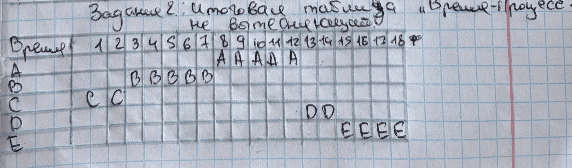 Задание 2: Итоговая таблица „Время-процесс
не вытесняющего
Время 1 2 3 4 5 6 7 8 9 10 11 12 13 14 15 16 17 18
A A A A A A
B B B B B B
C C C
D D D
E E E E E